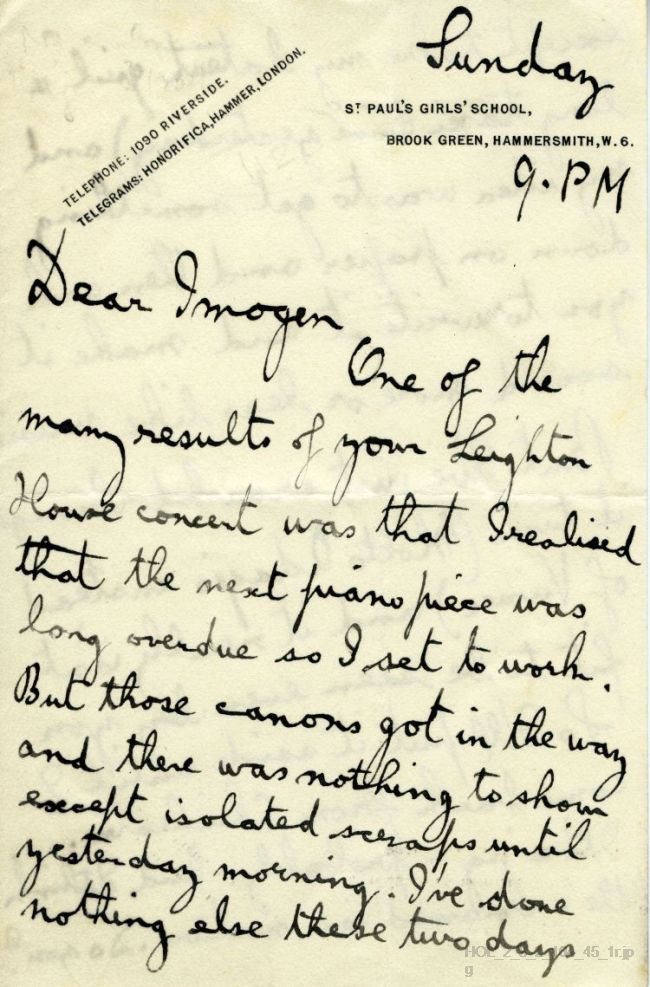 Sunday
TELEPHONE: 1090 RIVERSIDE.
TELEGRAMS: HONORIFICA, HAMMER, LONDON.
ST PAUL'S GIRLS' SCHOOL,
BROOK GREEN, HAMMERSMITH, W. 6.
9. PM
Dear Imogen
One of the
many results of your Leighton
House concert was that I realised
that the next piano piece was
long overdue so I set to work.
But those canons got in the way
and there was nothing to show
except isolated scraps until
yesterday morning. I've done
nothing else these two days